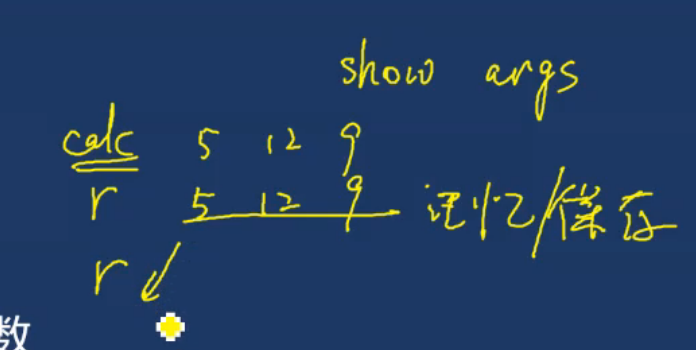 show args
calc 5 12 9
r 5 12 9 记忆/保存
r
数